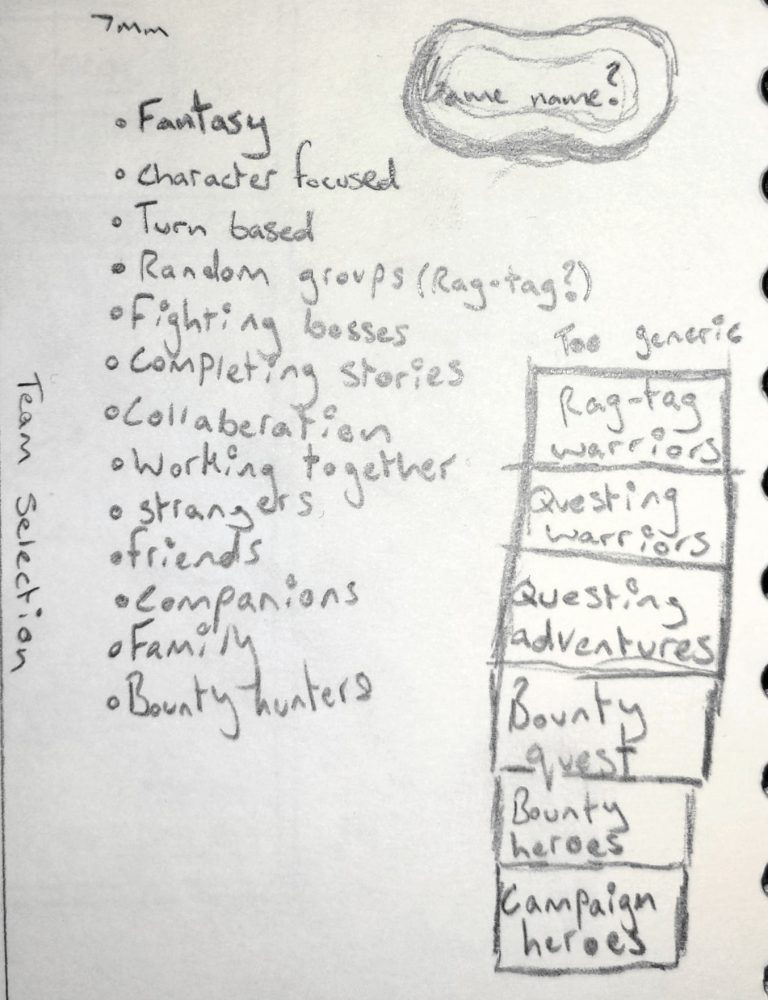 7mm
Game name?
• Fantasy
• Character focused
• Turn based
• Random groups (Rag-tag?)
• Fighting bosses
• Completing stories
• Collaberation
• Working together
• strangers
• friends
• Companions
• Family
• Bounty hunters
Team Selection
Too generic
Rag-tag
warriors
Questing
warriors
Questing
adventures
Bounty
quest
Bounty
heroes
Campaign
heroes